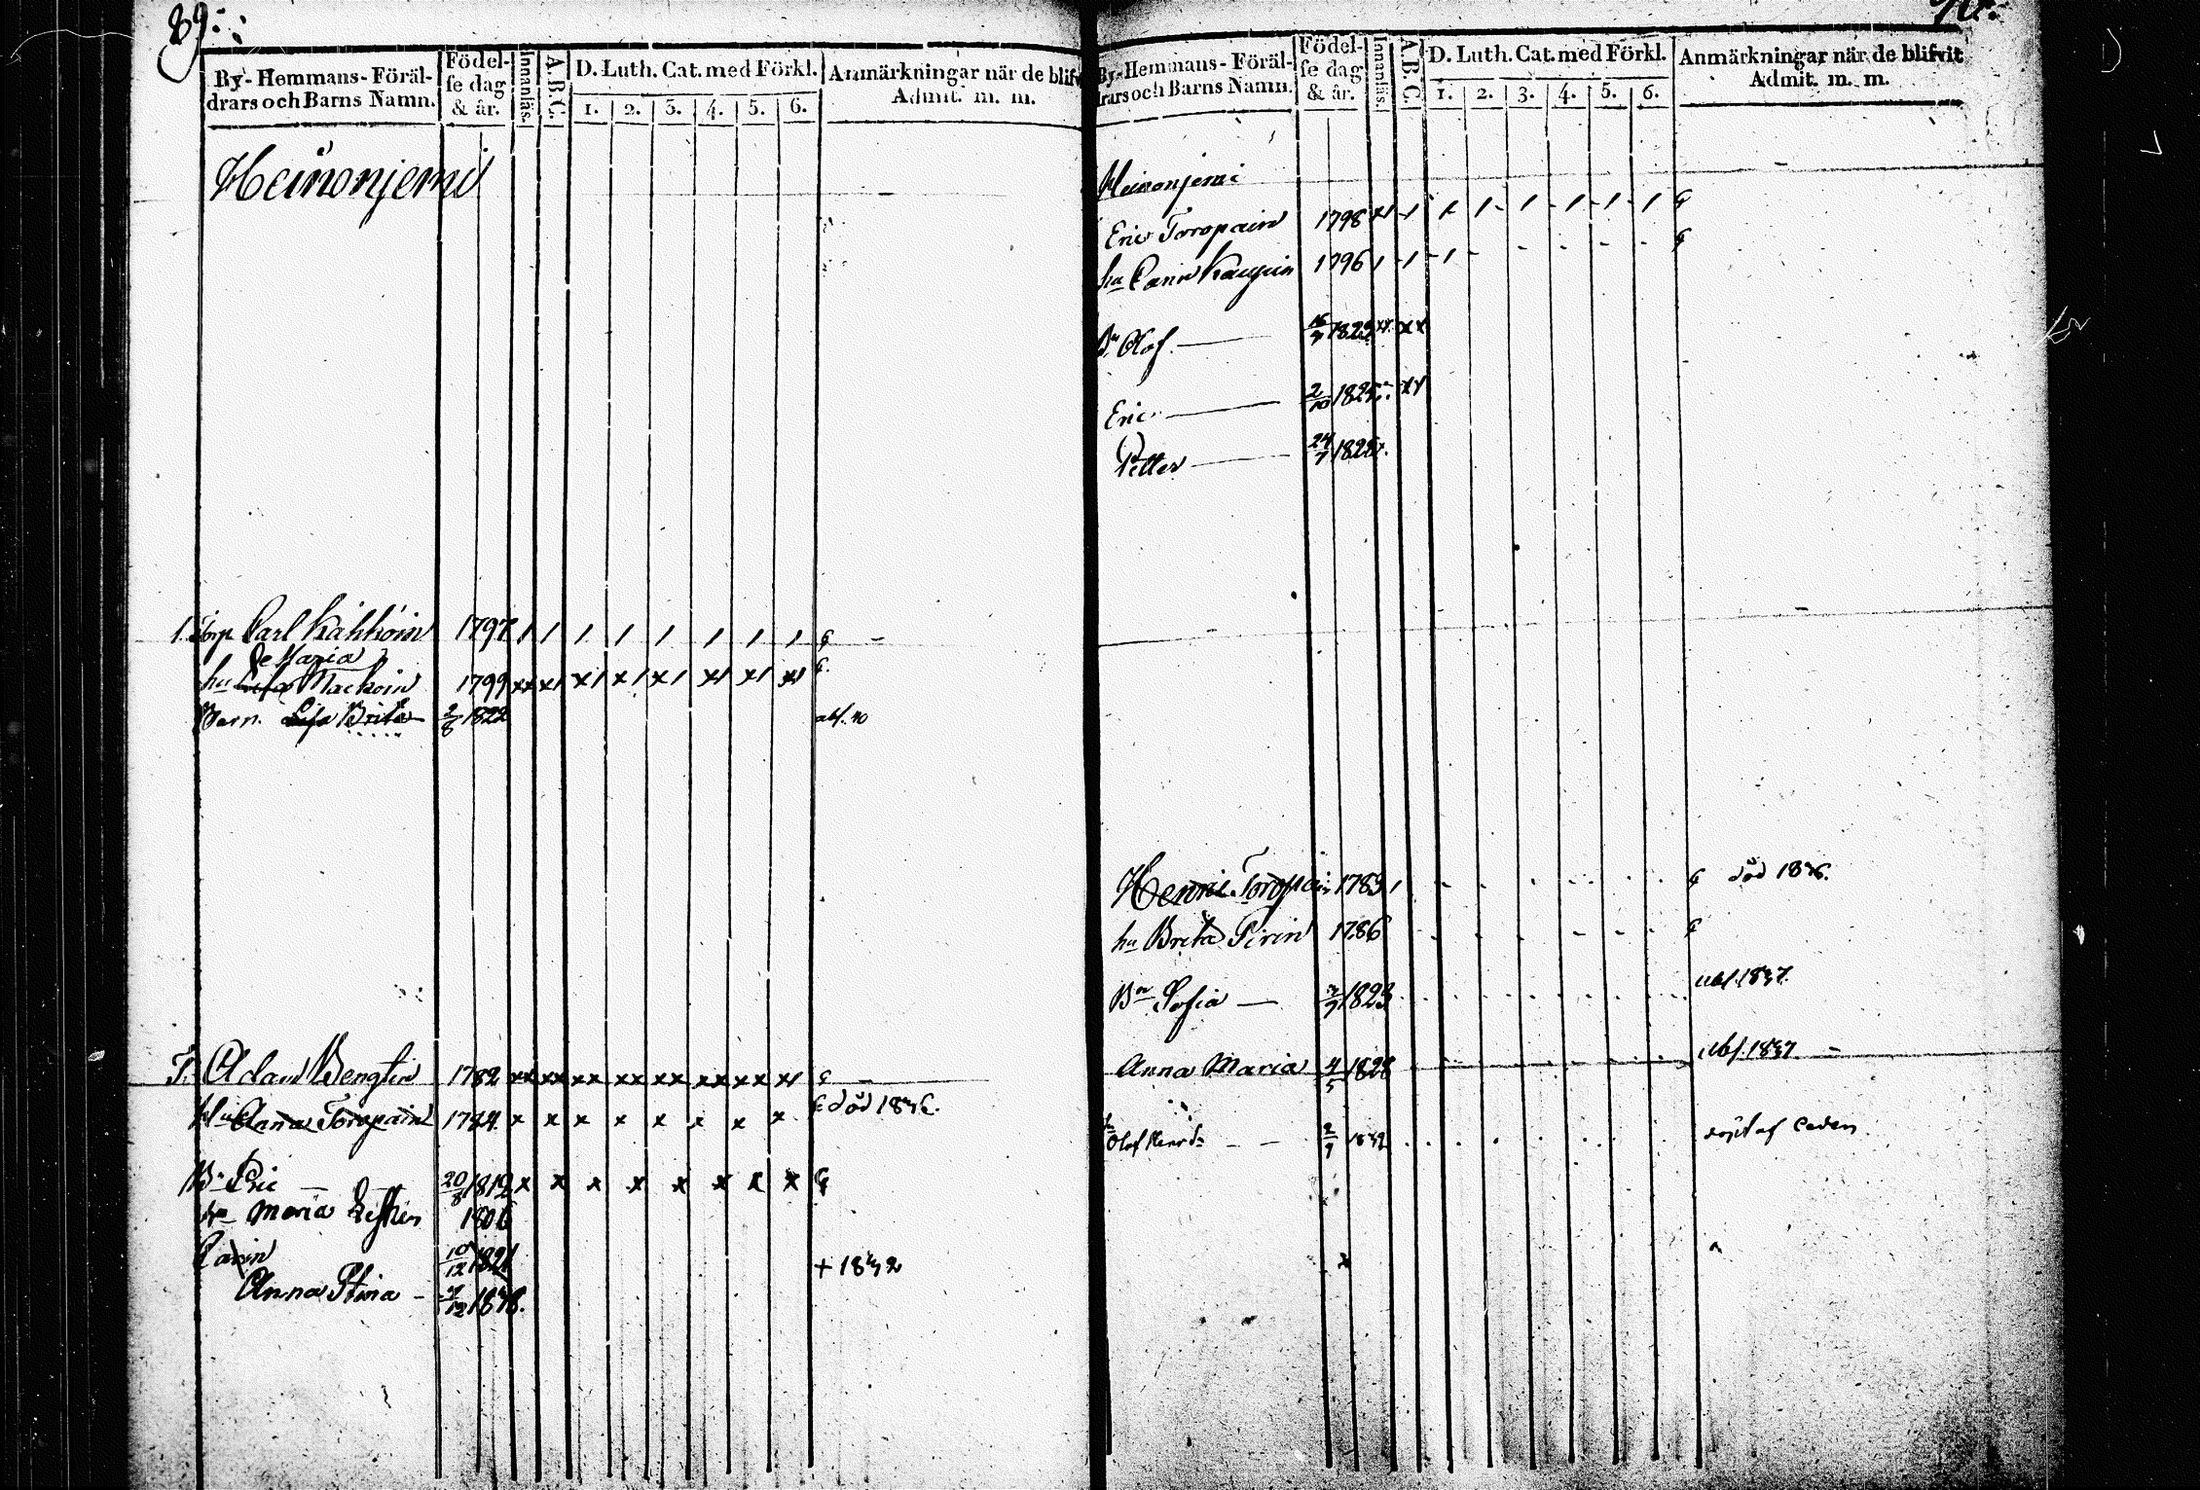 89.
By- Hemmans- Föräl-
drars och Barns Namn.
Födel-
se dag
& år.
Innanläs.
A.B.C.
D. Luth. Cat. med Förkl.
1. 2. 3. 4. 5. 6.
Anmärkningar när de blifv
Admit. m. m.
Heinonjemi
1. Torp Carl Kähköin 1797 / / / / / / / /
Maria
hu Lisa Mackoin 1799 xx x/ x/ x/ x/ x/ x/ x/
Barn. Lisa Brita 2/8 1822 abs. 40
T. Adam Bengtin 1782 xx xx xx xx xx xx xx x/
Hu Anna Toropain x x x x x x x x död 1836.
Bn Eric — 20/8 1812 x x x x x x x x
hu Maria 1806
Carin 10/12 1821 + 1832
Anna Stina - 1838.
90.
By- Hemmans- Föräl-
drars och Barns Namn.
Födel-
se dag
& år.
Innanläs.
A.B.C.
D. Luth. Cat. med Förkl.
1. 2. 3. 4. 5. 6.
Anmärkningar när de blifvit
Admit. m. m.
Heinonjemi
Eric Toropain 1798
hu Carin Kaupin 1796
Bn Olof — 1822 xx
Eric — 2/10 1825 xx
Petter — 24/7 1828
Henric Toropain 1783 död 1836.
hu Brita Pirin 1786
Bn Sofia — 1823 abs. 1837.
Anna Maria 4/5 1828 abs. 1837 —
Olof — — 2/9 1832